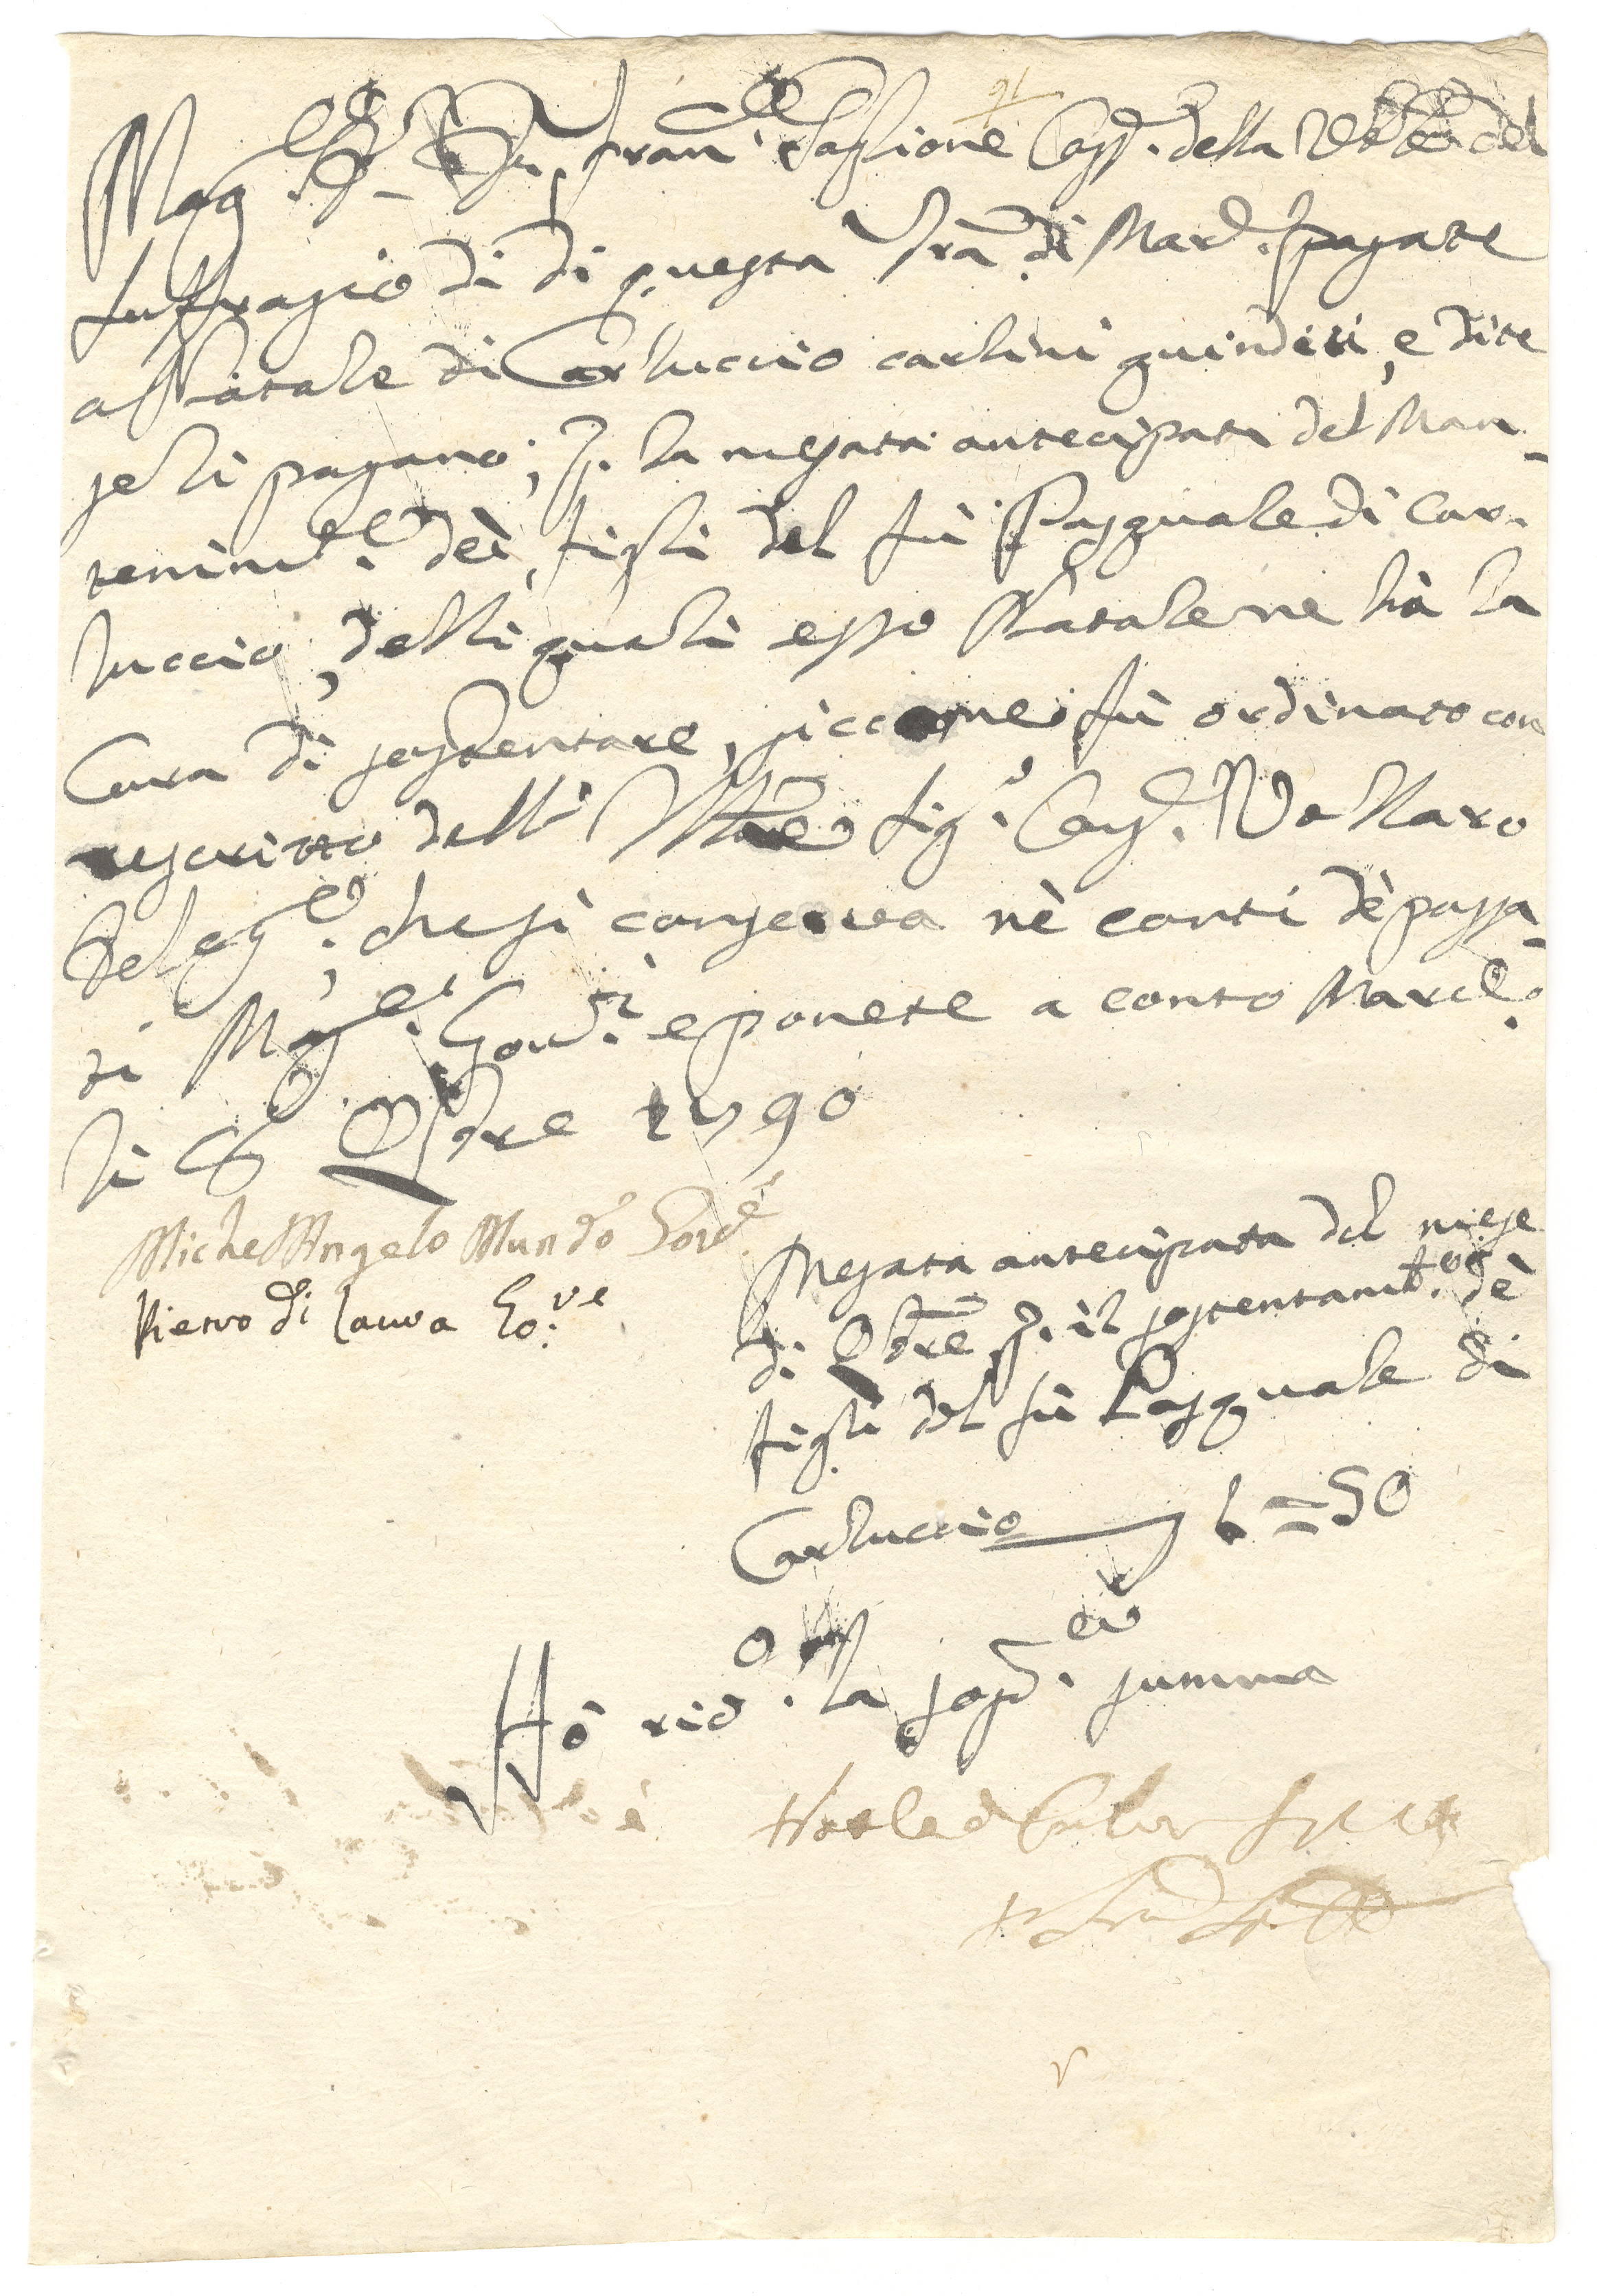 91
Mag.co Fran.co Saglione Cass.e della
Suffragio di di questa Tra di Mard. pagate
a Natale di Carluccio carlini quindeci, e dite
se li pagano; p. la mesata antecipata del Man-
tenim.to dei figli del fù Pasquale di Car-
luccio, delli quali esso Natale ne hà la
Cura di sostentare, siccome fù ordinato con
rescritto dell' Sig.r Vallaro
Deleg.to, che si conserva nè conti dè passa-
ti Mag.ci Gov.ri e ponete a conto Marcl.o
li 6 Obre 1790
Michel'Angelo Mundo Gov.e
Pietro di Laura Go:ve
Mesata antecipata del mese
di Obre p. il sostentam.to dè
figli del fù Pasquale di
Carluccio 1=50
Hò ric.o la sop.a summa